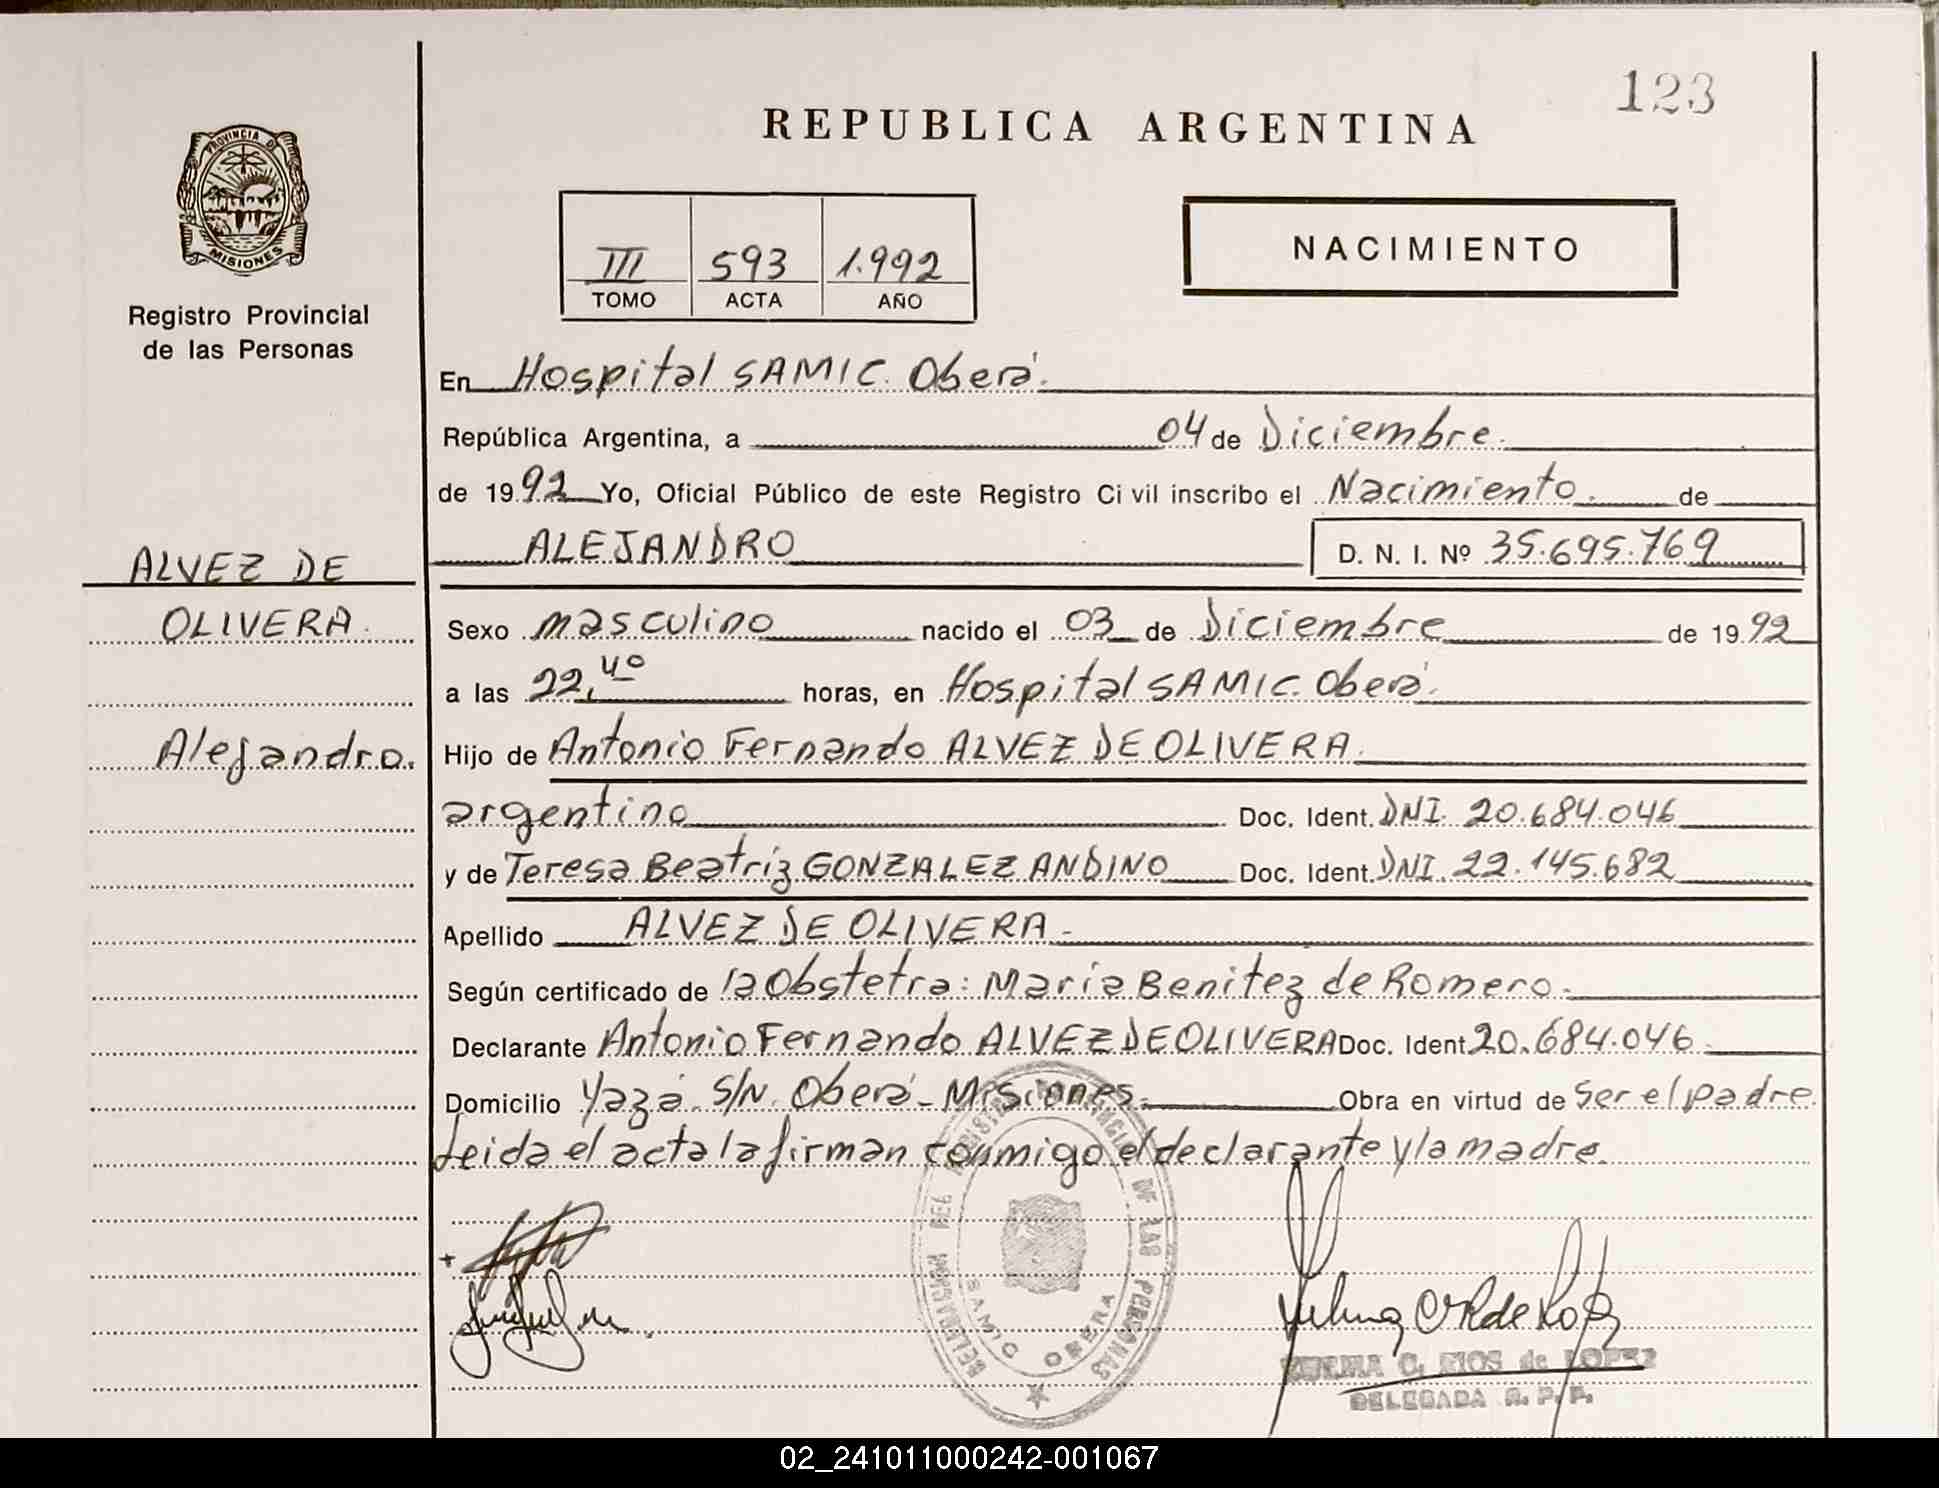 123
REPUBLICA ARGENTINA
PROVINCIA DE
MISIONES
Registro Provincial
de las Personas
III 593 1.992
TOMO ACTA AÑO
NACIMIENTO
En Hospital SAMIC. Oberá.
República Argentina, a 04 de Diciembre.
de 1992 Yo, Oficial Público de este Registro Ci vil inscribo el Nacimiento. de
ALEJANDRO D. N. I. Nº 35.695.769
ALVEZ DE
OLIVERA.
Alejandro.
Sexo masculino nacido el 03 de Diciembre de 1992
a las 22,40 horas, en Hospital SAMIC. Oberá.
Hijo de Antonio Fernando ALVEZ DE OLIVERA.
argentino Doc. Ident. DNI. 20.684.046
y de Teresa Beatríz GONZALEZ ANDINO Doc. Ident. DNI. 22.145.682
Apellido ALVEZ DE OLIVERA.-
Según certificado de la Obstetra: María Benitez de Romero.-
Declarante Antonio Fernando ALVEZ DE OLIVERA Doc. Ident. 20.684.046.
Domicilio Yazá. S/N. Oberá - Misiones.- Obra en virtud de ser el padre.
Leida el acta la firman conmigo el declarante y la madre.
DELEGACION DEL REGISTRO PROVINCIAL DE LAS PERSONAS
SAMIC OBERA
C. RIOS de LOPEZ
DELEGADA R. P. P.
02_241011000242-001067